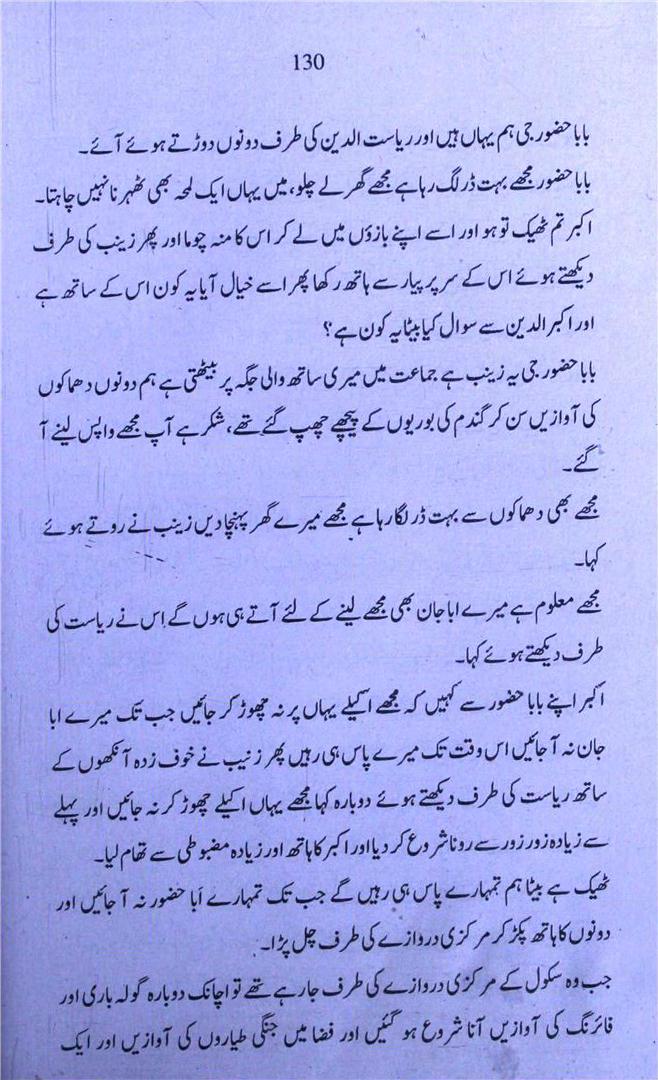 130
بابا حضور جی ہم یہاں ہیں اور ریاست الدین کی طرف دونوں دوڑتے ہوئے آئے۔
بابا حضور مجھے بہت ڈر لگ رہا ہے مجھے گھر لے چلو، میں یہاں ایک لمحہ بھی ٹھہرنا نہیں چاہتا۔
اکبر تم ٹھیک تو ہو اور اسے اپنے بازؤں میں لے کر اس کا منہ چوما اور پھر زینب کی طرف
دیکھتے ہوئے اس کے سر پر پیار سے ہاتھ رکھا پھر اسے خیال آیا یہ کون اس کے ساتھ ہے
اور اکبر الدین سے سوال کیا بیٹا یہ کون ہے؟
بابا حضور جی یہ زینب ہے جماعت میں میری ساتھ والی جگہ پر بیٹھتی ہے ہم دونوں دھماکوں
کی آوازیں سن کر گندم کی بوریوں کے پیچھے چھپ گئے تھے، شکر ہے آپ مجھے واپس لینے آ
گئے۔
مجھے بھی دھماکوں سے بہت ڈر لگا رہا ہے مجھے میرے گھر پہنچا دیں زینب نے روتے ہوئے
کہا۔
مجھے معلوم ہے میرے ابا جان بھی مجھے لینے کے لئے آتے ہی ہوں گے اس نے ریاست کی
طرف دیکھتے ہوئے کہا۔
اکبر اپنے بابا حضور سے کہیں کہ مجھے اکیلے یہاں پر نہ چھوڑ کر جائیں جب تک میرے ابا
جان نہ آ جائیں اس وقت تک میرے پاس ہی رہیں پھر زنیب نے خوف زدہ آنکھوں کے
ساتھ ریاست کی طرف دیکھتے ہوئے دوبارہ کہا مجھے یہاں اکیلے چھوڑ کر نہ جائیں اور پہلے
سے زیادہ زور زور سے رونا شروع کر دیا اور اکبر کا ہاتھ اور زیادہ مضبوطی سے تھام لیا۔
ٹھیک ہے بیٹا ہم تمہارے پاس ہی رہیں گے جب تک تمہارے اَبا حضور نہ آ جائیں اور
دونوں کا ہاتھ پکڑ کر مرکزی دروازے کی طرف چل پڑا۔
جب وہ سکول کے مرکزی دروازے کی طرف جا رہے تھے تو اچانک دوبارہ گولہ باری اور
فائرنگ کی آوازیں آنا شروع ہو گئیں اور فضا میں جنگی طیاروں کی آوازیں اور ایک